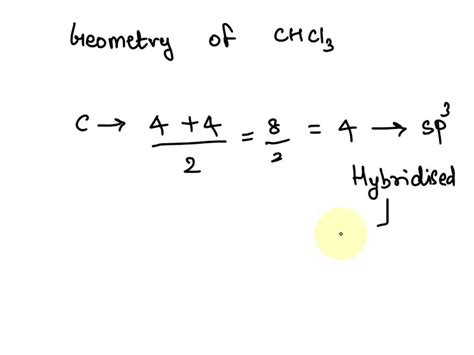 Geometry of CHCl₃
C → 4 + 4 / 2 = 8 / 2 = 4 → sp³
Hybridised